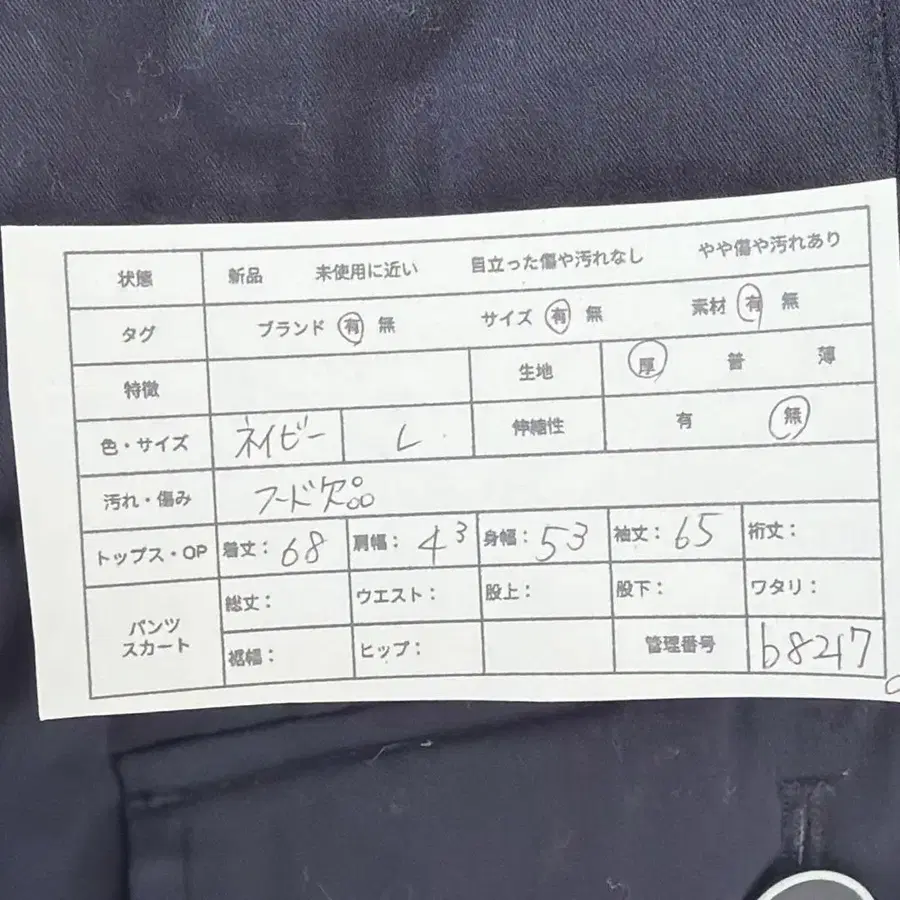 状態 新品 未使用に近い 目立った傷や汚れなし やや傷や汚れあり
タグ ブランド 有 無 サイズ 有 無 素材 有 無
特徴 生地 厚 普 薄
色・サイズ ネイビー L 伸縮性 有 無
汚れ・傷み フード欠品
トップス・OP 着丈: 68 肩幅: 43 身幅: 53 袖丈: 65 裄丈:
パンツ スカート 総丈: ウエスト: 股上: 股下: ワタリ:
裾幅: ヒップ: 管理番号 b8247